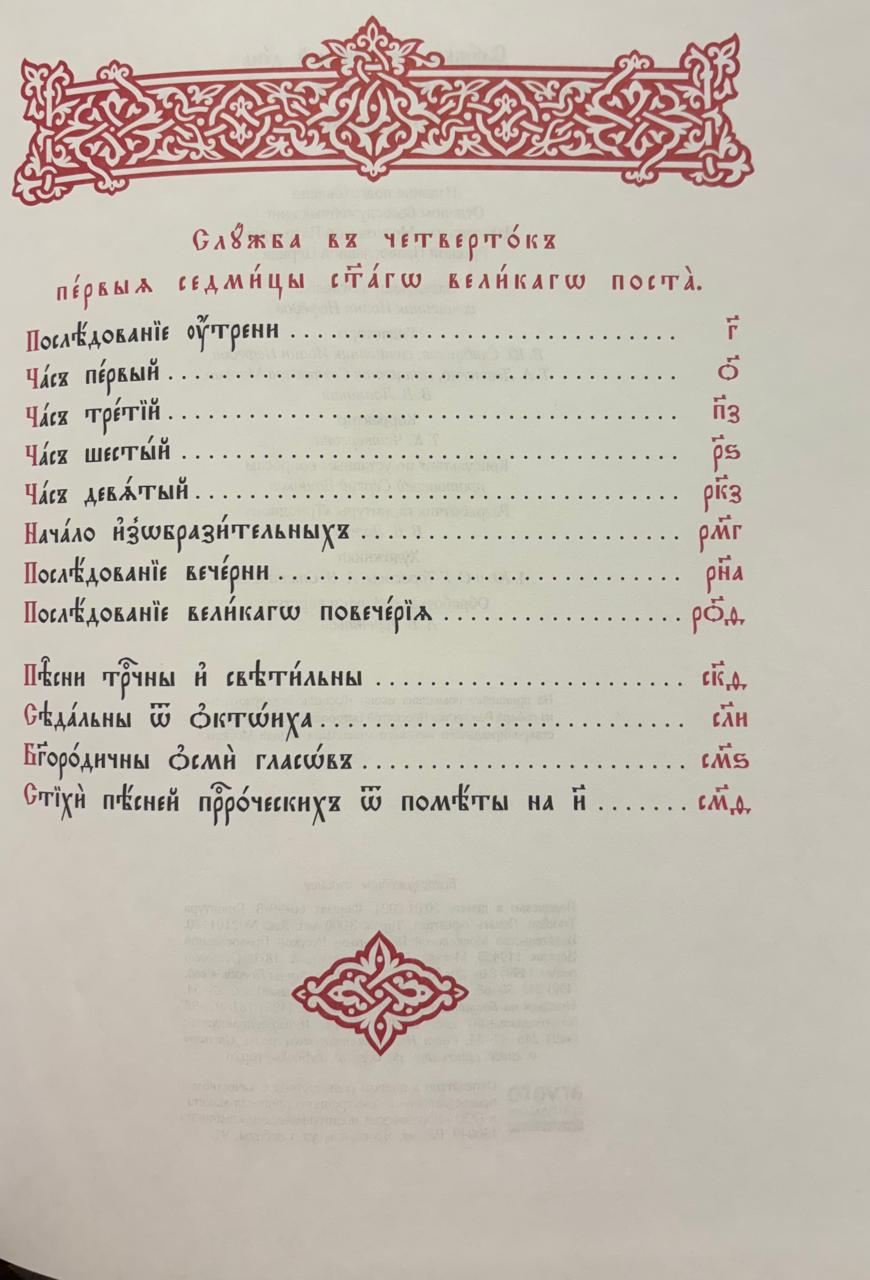 Слꙋ́жба въ четверто́къ
пе́рвыѧ седми́цы ст҃а́гѡ вели́кагѡ поста̀.
Послѣ́дованїе ᲂу҆́трени . . . . . . . . . . . . . . . . . . . . . . . . . г҃
Ча́съ пе́рвый . . . . . . . . . . . . . . . . . . . . . . . . . . . . . . . . . . . ѻ҃
Ча́съ тре́тїй . . . . . . . . . . . . . . . . . . . . . . . . . . . . . . . . . . . п҃з
Ча́съ шесты́й . . . . . . . . . . . . . . . . . . . . . . . . . . . . . . . . . . р҃ѕ
Ча́съ девѧ́тый . . . . . . . . . . . . . . . . . . . . . . . . . . . . . . . . . рк҃з
Нача́ло и҆з̾ѡбрази́тельныхъ . . . . . . . . . . . . . . . . . . . . . . рм҃г
Послѣ́дованїе вече́рни . . . . . . . . . . . . . . . . . . . . . . . . . . . рн҃а
Послѣ́дованїе вели́кагѡ повече́рїѧ . . . . . . . . . . . . . . . . рѻ҃д
Пѣ̑сни трⷪ҇чны и҆ свѣти́льны . . . . . . . . . . . . . . . . . . . . . ск҃д
Сѣда́льны ѿ ѻ҆ктѡ́иха . . . . . . . . . . . . . . . . . . . . . . . . . сл҃и
Бг҃оро́дичны ѻ҆смѝ гласѡ́въ . . . . . . . . . . . . . . . . . . . . . . см҃ѕ
Стїхѝ пѣ́сней прⷪ҇ро́ческихъ ѿ помѣ́ты на и҃ . . . . . . . см҃д